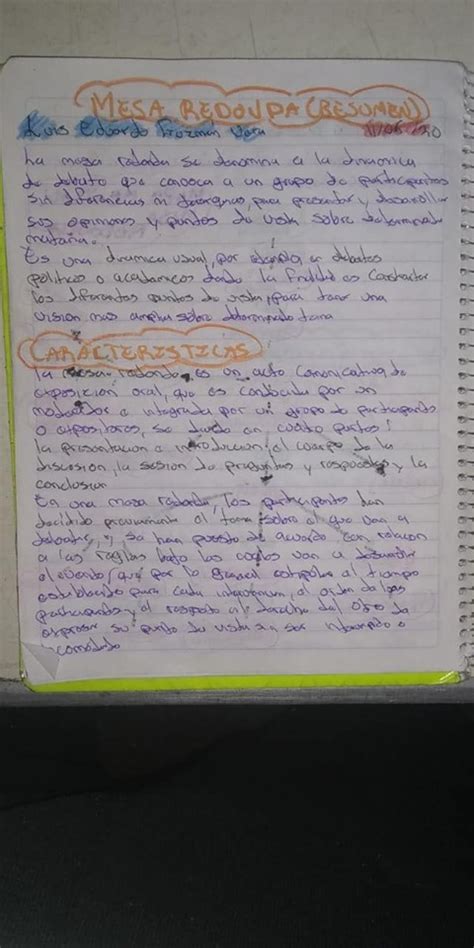 MESA REDONDA (RESUMEN)
Luis Eduardo Guzman Vera 11/06/20
La mesa redonda se denomina a la dinamica
de debate que convoca a un grupo de participantes
sin diferencias ni jerarquias, para presentar y desarrollar
sus opiniones y puntos de vista sobre determinada
materia.
Es una dinamica usual, por ejemplo, en debates
politicos o academicos donde la finalidad es contrastar
los diferentes puntos de vista, para tener una
vision mas amplia sobre determinado tema
CARACTERISTICAS
la mesa redonda, es un acto comunicativo, de
exposicion oral, que es conducida por un
moderador e integrada por un grupo de participantes
o expositores, se divide en cuatro partes:
la presentacion o introduccion, el cuerpo de la
discusion, la sesion de preguntas y respuestas y la
conclusion
En una mesa redonda, los participantes han
decidido previamente el tema sobre el que van a
debatir, y se han puesto de acuerdo con relacion
a las reglas bajo las cuales van a desarrollar
el evento, que por lo general estipulan el tiempo
establecido para cada intervencion, el orden de los
participantes y el respeto al derecho del otro de
expresar su punto de vista sin ser interrumpido o
incomodado